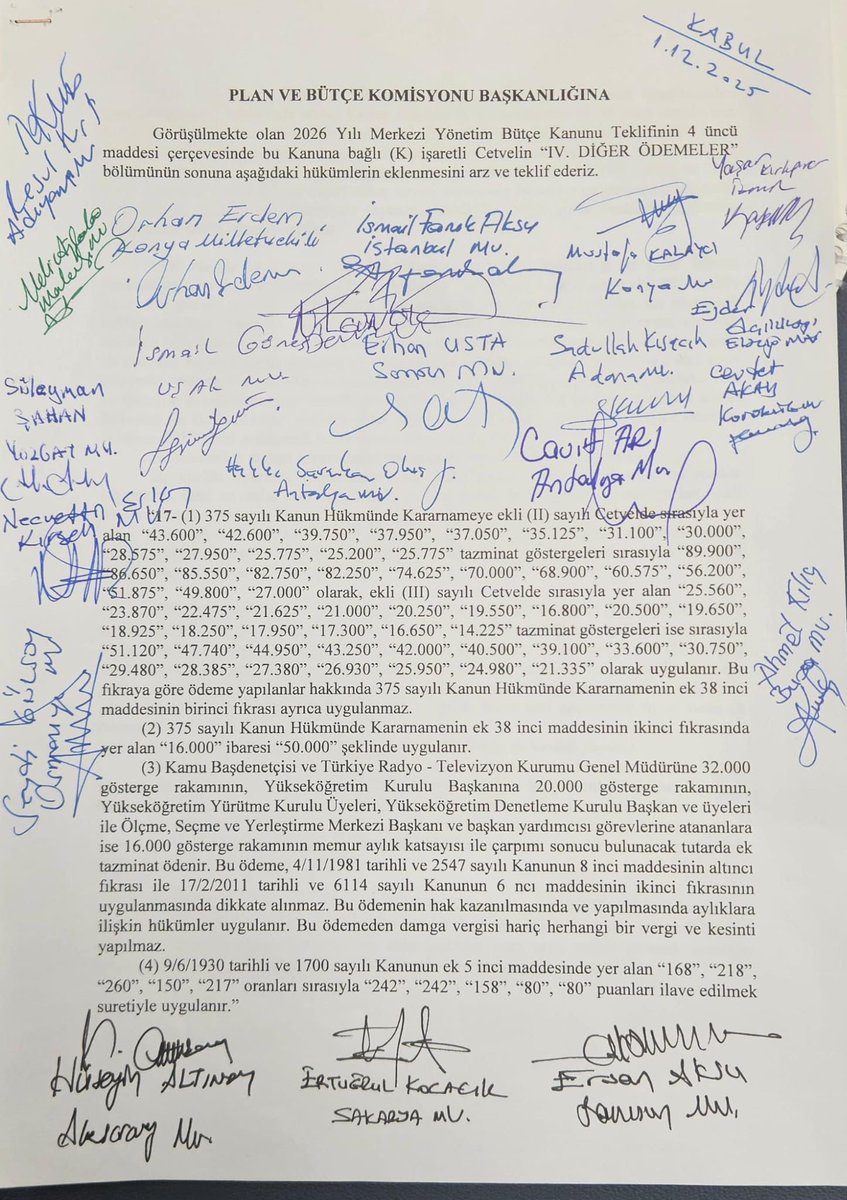 KABUL
1.12.2025
PLAN VE BÜTÇE KOMİSYONU BAŞKANLIĞINA
Görüşülmekte olan 2026 Yılı Merkezi Yönetim Bütçe Kanunu Teklifinin 4 üncü
maddesi çerçevesinde bu Kanuna bağlı (K) işaretli Cetvelin “IV. DİĞER ÖDEMELER”
bölümünün sonuna aşağıdaki hükümlerin eklenmesini arz ve teklif ederiz.
Orhan Erdem
Konya Milletvekili
İsmail Faruk Aksu
İstanbul Mv.
Mustafa KALAYCI
Konya Mv
İsmail Güneş
UŞAK MV.
Erhan USTA
Samsun Mv.
Sadullah Kısacık
Adana Mv.
Cevdet
AKAY
Süleyman
ŞAHAN
YOZGAT MV.
Cavit ARI
Antalya Mv
Antalya Mv.
Necmettin Erkan
Kırşehir Mv
“17- (1) 375 sayılı Kanun Hükmünde Kararnameye ekli (II) sayılı Cetvelde sırasıyla yer
alan “43.600”, “42.600”, “39.750”, “37.950”, “37.050”, “35.125”, “31.100”, “30.000”,
“28.575”, “27.950”, “25.775”, “25.200”, “25.775” tazminat göstergeleri sırasıyla “89.900”,
“86.650”, “85.550”, “82.750”, “82.250”, “74.625”, “70.000”, “68.900”, “60.575”, “56.200”,
“51.875”, “49.800”, “27.000” olarak, ekli (III) sayılı Cetvelde sırasıyla yer alan “25.560”,
“23.870”, “22.475”, “21.625”, “21.000”, “20.250”, “19.550”, “16.800”, “20.500”, “19.650”,
“18.925”, “18.250”, “17.950”, “17.300”, “16.650”, “14.225” tazminat göstergeleri ise sırasıyla
“51.120”, “47.740”, “44.950”, “43.250”, “42.000”, “40.500”, “39.100”, “33.600”, “30.750”,
“29.480”, “28.385”, “27.380”, “26.930”, “25.950”, “24.980”, “21.335” olarak uygulanır. Bu
fıkraya göre ödeme yapılanlar hakkında 375 sayılı Kanun Hükmünde Kararnamenin ek 38 inci
maddesinin birinci fıkrası ayrıca uygulanmaz.
(2) 375 sayılı Kanun Hükmünde Kararnamenin ek 38 inci maddesinin ikinci fıkrasında
yer alan “16.000” ibaresi “50.000” şeklinde uygulanır.
(3) Kamu Başdenetçisi ve Türkiye Radyo - Televizyon Kurumu Genel Müdürüne 32.000
gösterge rakamının, Yükseköğretim Kurulu Başkanına 20.000 gösterge rakamının,
Yükseköğretim Yürütme Kurulu Üyeleri, Yükseköğretim Denetleme Kurulu Başkan ve üyeleri
ile Ölçme, Seçme ve Yerleştirme Merkezi Başkanı ve başkan yardımcısı görevlerine atananlara
ise 16.000 gösterge rakamının memur aylık katsayısı ile çarpımı sonucu bulunacak tutarda ek
tazminat ödenir. Bu ödeme, 4/11/1981 tarihli ve 2547 sayılı Kanunun 8 inci maddesinin altıncı
fıkrası ile 17/2/2011 tarihli ve 6114 sayılı Kanunun 6 ncı maddesinin ikinci fıkrasının
uygulanmasında dikkate alınmaz. Bu ödemenin hak kazanılmasında ve yapılmasında aylıklara
ilişkin hükümler uygulanır. Bu ödemeden damga vergisi hariç herhangi bir vergi ve kesinti
yapılmaz.
(4) 9/6/1930 tarihli ve 1700 sayılı Kanunun ek 5 inci maddesinde yer alan “168”, “218”,
“260”, “150”, “217” oranları sırasıyla “242”, “242”, “158”, “80”, “80” puanları ilave edilmek
suretiyle uygulanır.”
Ahmet Kılıç
Bursa Mv.
Hüseyin ALTINSOY
Aksaray Mv.
ERTUĞRUL KOCACIK
SAKARYA MV.
Ersan AKSU
Samsun Mv.